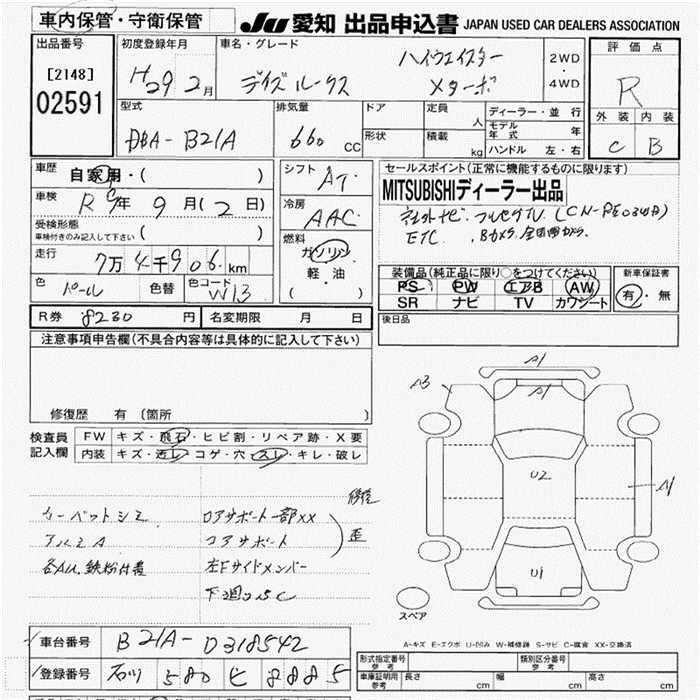 車内保管・守衛保管
JU 愛知 出品申込書 JAPAN USED CAR DEALERS ASSOCIATION
出品番号
[2148]
02591
初度登録年月
H29 2月
車名・グレード
デイズルークス
ハイウェイスター
Xターボ
2WD
・
4WD
評価点
R
外装 内装
C B
型式
DBA-B21A
排気量
660 CC
ドア
形状
定員 人
積載 kg
ディーラー・並行
モデル年式 年
ハンドル 左・右
車歴
自家用・( )
車検
R9年9月(2日)
受検形態
車検付きのみ記入して下さい ( )
走行
7万4千906km
色 パール 色替 色コード W13
シフト
AT
冷房
AAC
燃料
ガソリン
軽・油
( )
セールスポイント(正常に機能するものに限ります)
MITSUBISHIディーラー出品
社外ナビ、フルセグTV、(CN-RE03WD)
ETC、Bカメラ、全周囲カメラ
装備品(純正品に限り○をつけてください)
PS PW エアB AW
SR ナビ TV カワシート
新車保証書
有・無
R券 8230 円 名変期限 月 日
後日品
注意事項申告欄(不具合内容等は具体的に記入して下さい)
修復歴 有(箇所 )
検査員記入欄
FW キズ・飛石・ヒビ割・リペア跡・X要
内装 キズ・汚レ・コゲ・穴・スレ・キレ・破レ
修復
カーペットシミ
アルミA
各AW、鉄粉付着
ロアサポート一部XX
コアサポート
左Fサイドメンバー
歪
下廻りSC
A1
A3
A1
U2
A1
U1
スペア
A-キズ E-エクボ U-凹み W-補修跡 S-サビ C-腐食 XX-交換済
車台番号 B21A-0318542
登録番号 石川 580 ヒ 8885
形式指定番号 参考
類別区分番号 参考
車庫証明用 参考 長さ cm 幅 cm 高さ cm